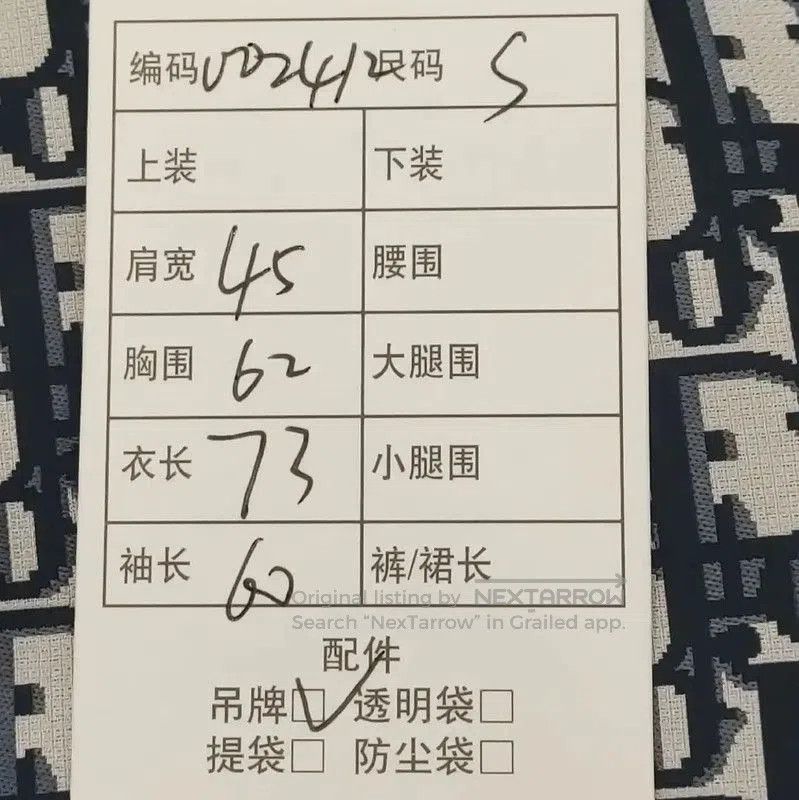 编码 002412 尺码 S
上装 下装
肩宽 45 腰围
胸围 62 大腿围
衣长 73 小腿围
袖长 60 裤/裙长
Original listing by NEXTARROW
Search “NexTarrow” in Grailed app.
配件
吊牌 透明袋
提袋 防尘袋